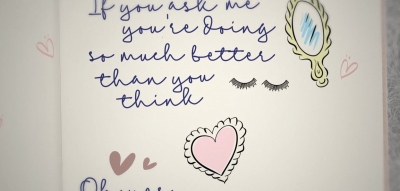 If you ask me
you're doing
so much better
than you
think